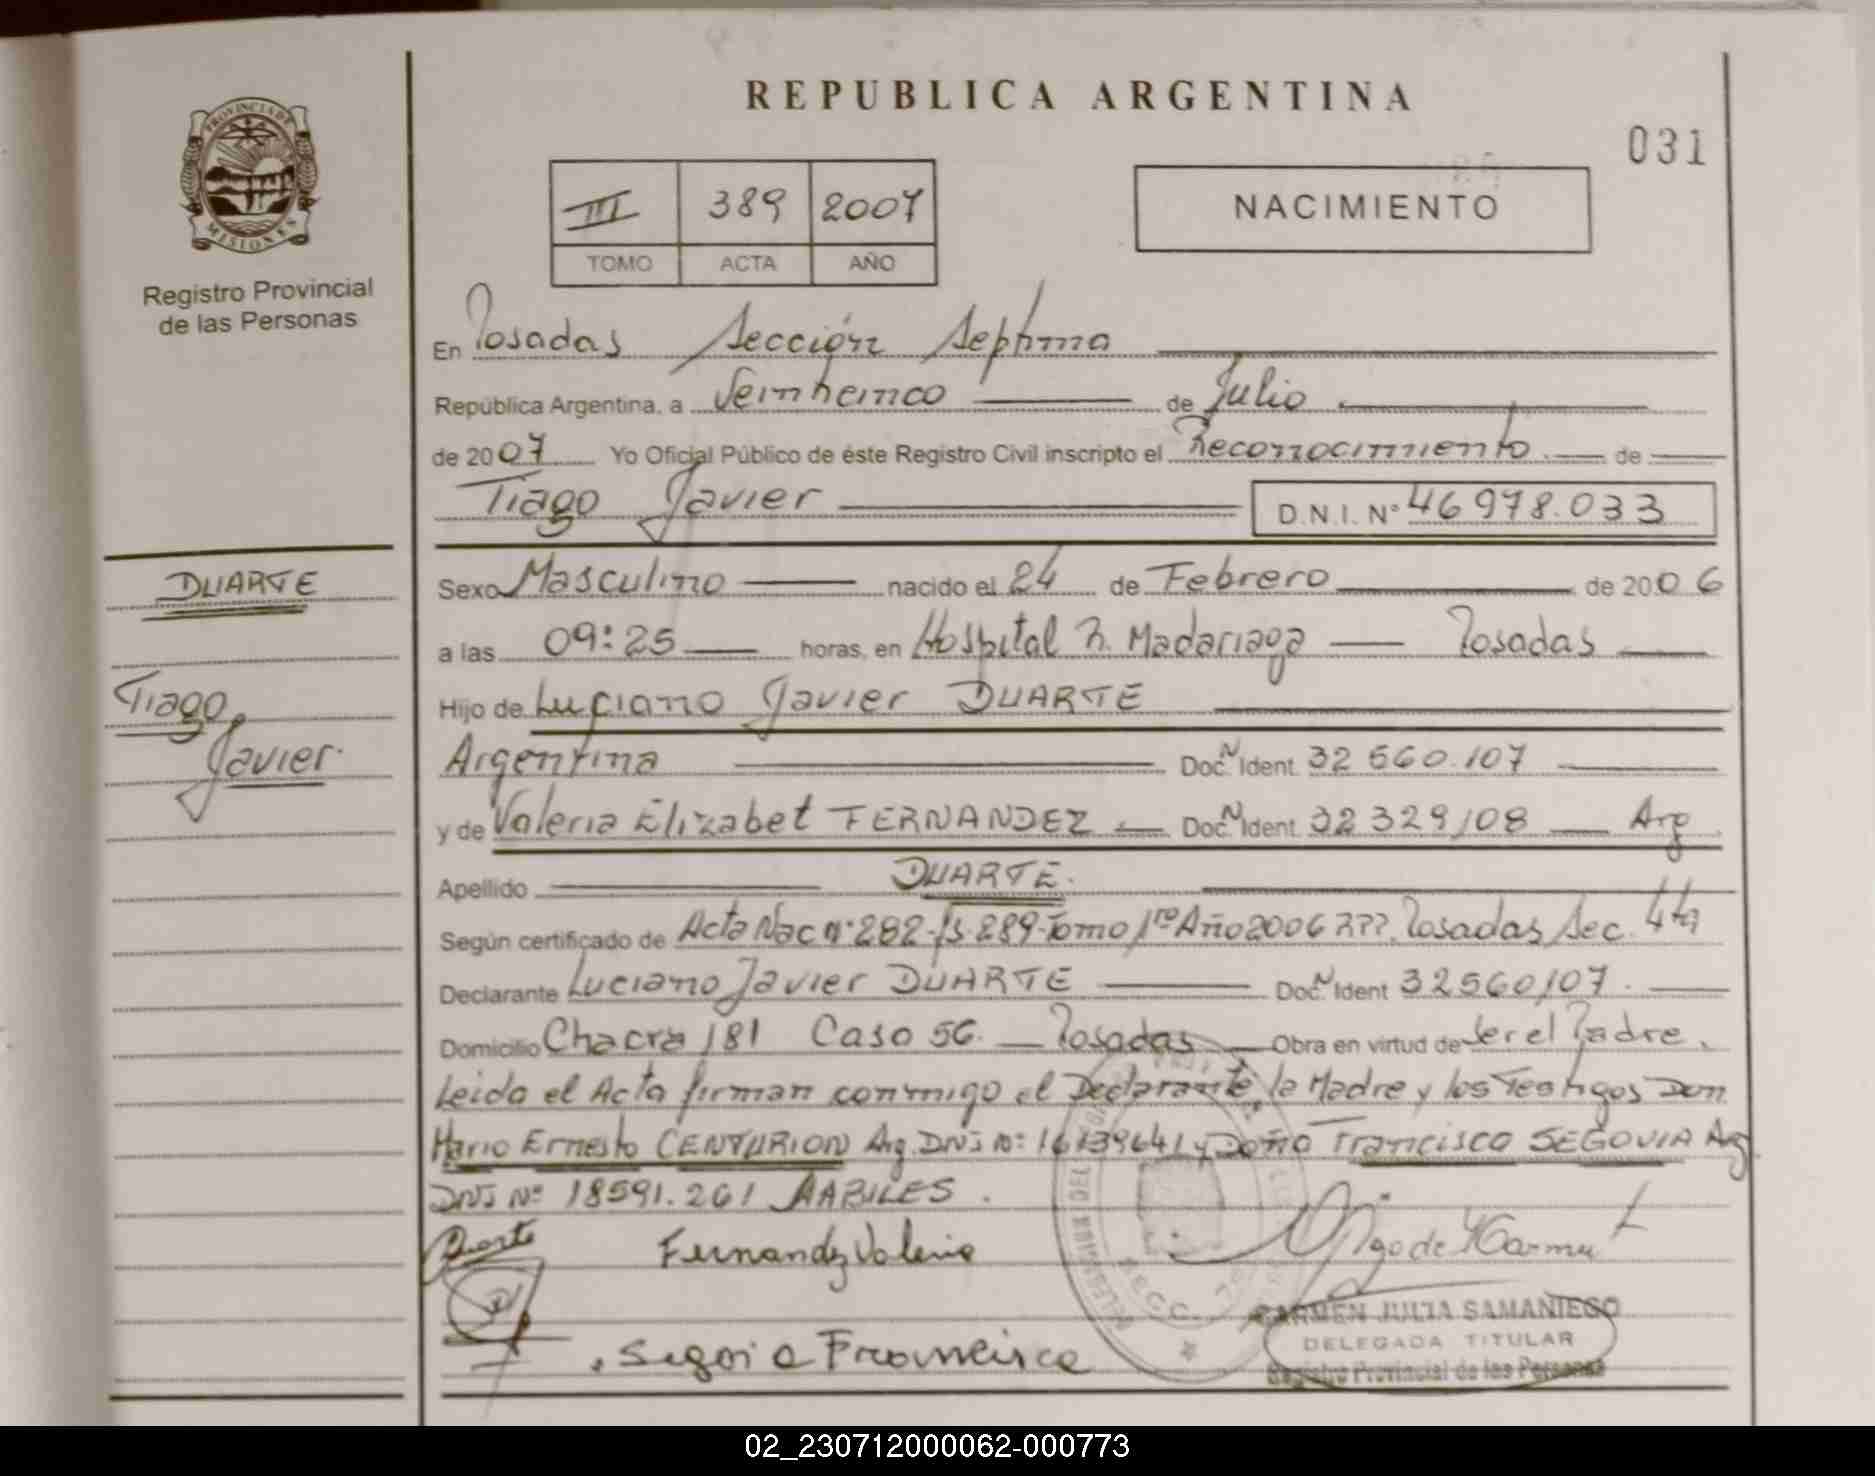 REPUBLICA ARGENTINA
031
PROVINCIA DE MISIONES
Registro Provincial
de las Personas
III 389 2007
TOMO ACTA AÑO
NACIMIENTO
En Posadas Sección Septima
República Argentina, a Veinticinco de Julio
de 2007 Yo Oficial Público de éste Registro Civil inscripto el Reconocimiento de
Tiago Javier D.N.I. Nº 46978.033
DUARTE
Tiago
Javier
Sexo Masculino nacido el 24 de Febrero de 2006
a las 09:25 horas, en Hospital R. Madariaga Posadas
Hijo de Luciano Javier DUARTE
Argentina Doc. N Ident. 32 560.107
y de Valeria Elizabet FERNANDEZ Doc. N Ident. 32 329108 Arg
Apellido DUARTE.
Según certificado de Acta Nac nº 282-fs. 289-Tomo 1ro Año 2006 Posadas Sec. 4ta
Declarante Luciano Javier DUARTE Doc. N Ident 32560107.
Domicilio Chacra 181 Casa 56. Posadas Obra en virtud de Ser el Padre.
Leida el Acta firman conmigo el Declarante, la Madre y los Testigos Don
Mario Ernesto CENTURION Arg. DNI Nº: 16139641 y Doña Francisca SEGOVIA Arg
DNI Nº 18591.261 HABILES.
Duarte Fernandez Valeria
Segovia Francisca
CARMEN JULIA SAMANIEGO
DELEGADA TITULAR
Registro Provincial de las Personas
02_230712000062-000773